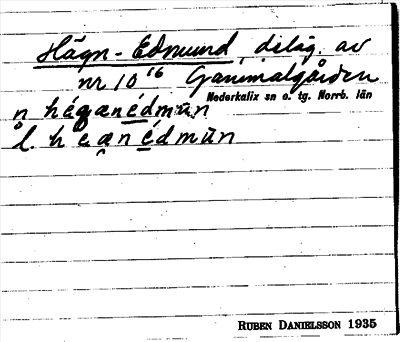 Hägn-Edmund, deläg. av
nr 10¹⁶ Gammalgården
Nederkalix sn o. tg. Norrb. län
n héganédmun
l. heanédmūn
RUBEN DANIELSSON 1935